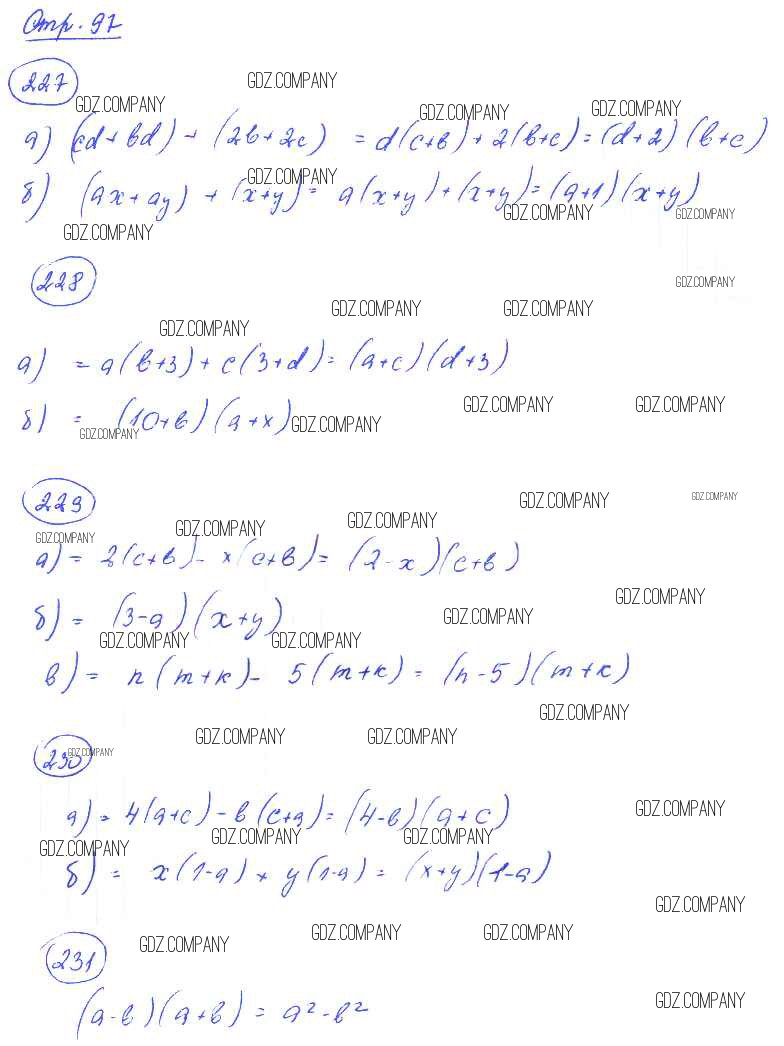 Стр. 97
227
GDZ.COMPANY
GDZ.COMPANY
GDZ.COMPANY
GDZ.COMPANY
а) (cd+bd) + (2b+2c) = d(c+b)+2(b+c)=(d+2)(b+c)
GDZ.COMPANY
б) (ax+ay) + (x+y)= a(x+y)+(x+y)=(a+1)(x+y)
GDZ.COMPANY
GDZ.COMPANY
GDZ.COMPANY
228
GDZ.COMPANY
GDZ.COMPANY
GDZ.COMPANY
GDZ.COMPANY
а) = a(b+3)+c(3+d)=(a+c)(d+3)
GDZ.COMPANY
GDZ.COMPANY
б) = (10+b)(a+x)
GDZ.COMPANY
GDZ.COMPANY
229
GDZ.COMPANY
GDZ.COMPANY
GDZ.COMPANY
GDZ.COMPANY
GDZ.COMPANY
а) = 2(c+b)-x(c+b)= (2-x)(c+b)
GDZ.COMPANY
б) = (3-a)(x+y)
GDZ.COMPANY
GDZ.COMPANY
GDZ.COMPANY
в) = n(m+k)- 5(m+k) = (n-5)(m+k)
GDZ.COMPANY
GDZ.COMPANY
GDZ.COMPANY
230
GDZ.COMPANY
а) = 4(a+c)-b(c+a)=(4-b)(a+c)
GDZ.COMPANY
GDZ.COMPANY
GDZ.COMPANY
GDZ.COMPANY
б) = x(1-a)+y(1-a) = (x+y)(1-a)
GDZ.COMPANY
231
GDZ.COMPANY
GDZ.COMPANY
GDZ.COMPANY
(a-b)(a+b) = a²-b²
GDZ.COMPANY